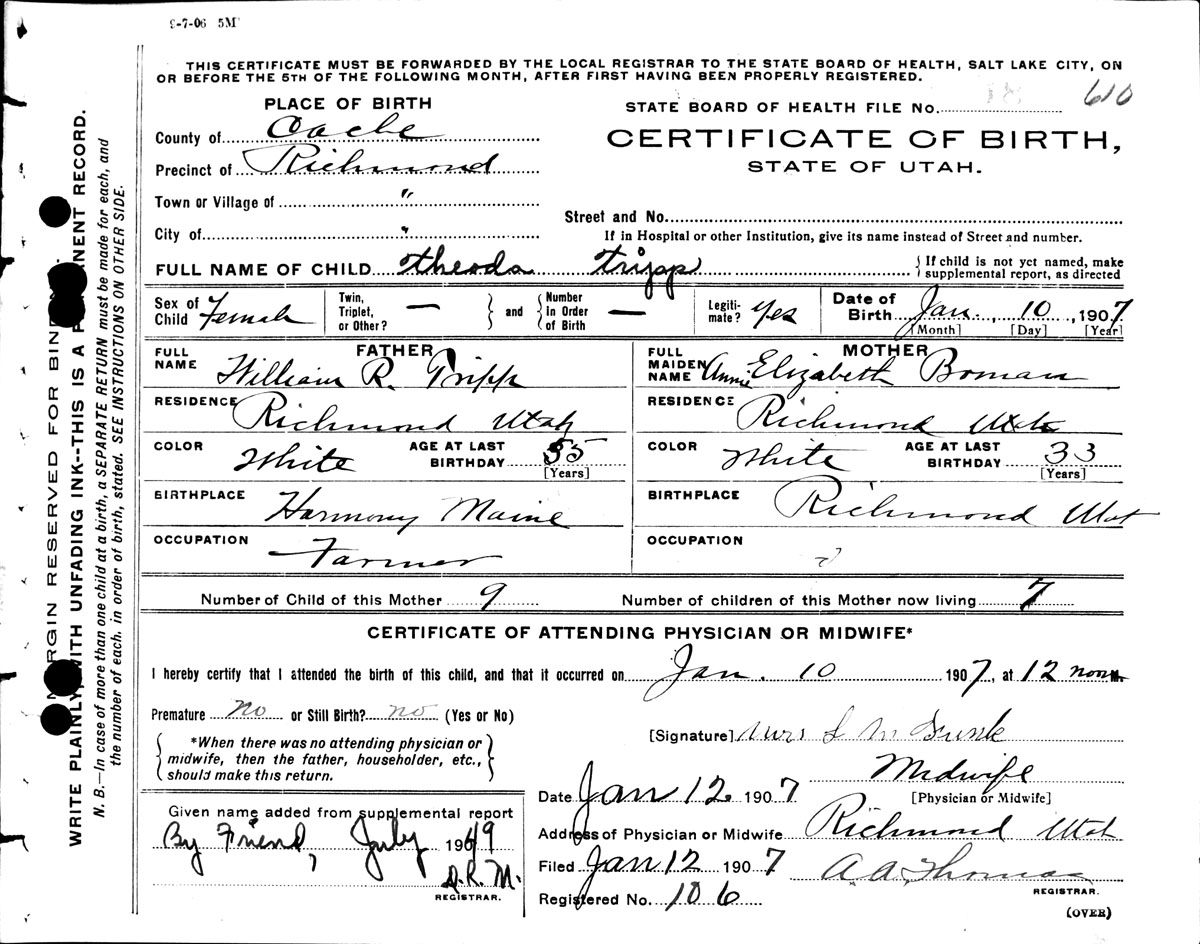 9-7-06 5M
THIS CERTIFICATE MUST BE FORWARDED BY THE LOCAL REGISTRAR TO THE STATE BOARD OF HEALTH, SALT LAKE CITY, ON
OR BEFORE THE 5TH OF THE FOLLOWING MONTH, AFTER FIRST HAVING BEEN PROPERLY REGISTERED.
PLACE OF BIRTH
STATE BOARD OF HEALTH FILE No. 610
County of Cache
CERTIFICATE OF BIRTH,
STATE OF UTAH.
Precinct of Richmond
Town or Village of "
Street and No.
City of "
If in Hospital or other Institution, give its name instead of Street and number.
FULL NAME OF CHILD Theoda Tripp
{ If child is not yet named, make
supplemental report, as directed
Sex of Child Female
Twin, Triplet, or Other? —
and
Number In Order of Birth —
Legitimate? Yes
Date of Birth Jan. 10, 1907
[Month] [Day] [Year]
FATHER
FULL NAME William R. Tripp
RESIDENCE Richmond Utah
COLOR White AGE AT LAST BIRTHDAY 55 [Years]
BIRTHPLACE Harmony Maine
OCCUPATION Farmer
MOTHER
FULL MAIDEN NAME Annie Elizabeth Boman
RESIDENCE Richmond Utah
COLOR White AGE AT LAST BIRTHDAY 33 [Years]
BIRTHPLACE Richmond Utah
OCCUPATION
Number of Child of this Mother 9 Number of children of this Mother now living 7
CERTIFICATE OF ATTENDING PHYSICIAN OR MIDWIFE*
I hereby certify that I attended the birth of this child, and that it occurred on Jan. 10 1907, at 12 noon M.
Premature no or Still Birth? no (Yes or No)
*When there was no attending physician or
midwife, then the father, householder, etc.,
should make this return.
[Signature] Mrs
Midwife
[Physician or Midwife]
Date Jan 12 1907
Address of Physician or Midwife Richmond Utah
Filed Jan 12 1907 A. A. Thomas
REGISTRAR.
Registered No. 106
(OVER)
Given name added from supplemental report
By Friend, July 1949
D.R.M.
REGISTRAR.
MARGIN RESERVED FOR
WRITE PLAINLY WITH UNFADING INK--THIS IS A PERMANENT RECORD.
N. B.—In case of more than one child at a birth, a SEPARATE RETURN must be made for each, and
the number of each, in order of birth, stated. SEE INSTRUCTIONS ON OTHER SIDE.